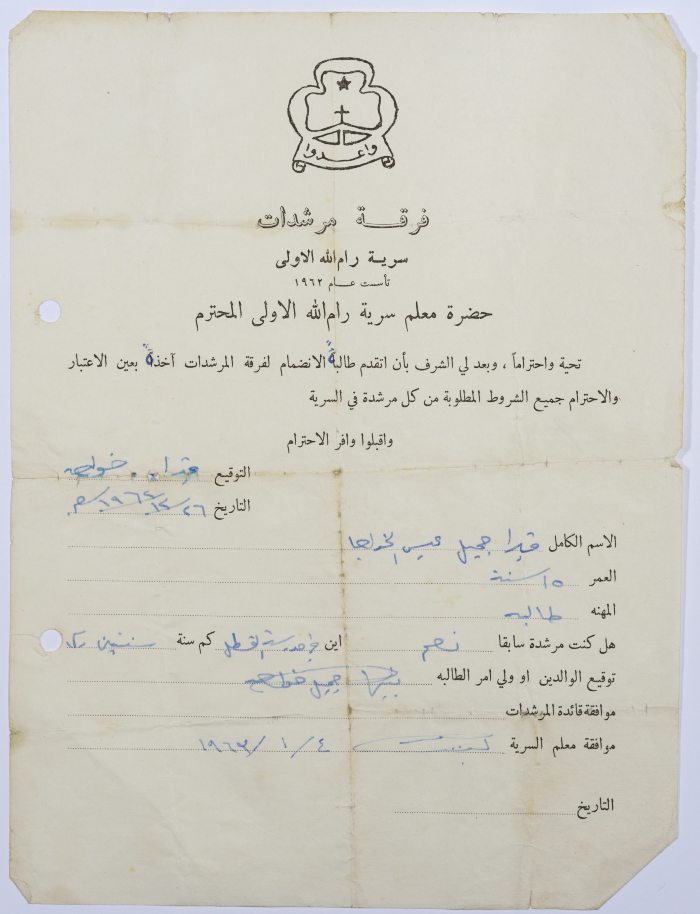 واعدوا
فرقة مرشدات
سرية رام الله الاولى
تأست عام ١٩٦٢
حضرة معلم سرية رام الله الاولى المحترم
تحية واحتراماً ، وبعد لي الشرف بأن اتقدم طالبةً الانضمام لفرقة المرشدات آخذةً بعين الاعتبار
والاحترام جميع الشروط المطلوبة من كل مرشدة في السرية
واقبلوا وافر الاحترام
التوقيع
التاريخ ٢٦/١٢/١٩٦٢م
الاسم الكامل فيرا جميل عيسى الخواجا
العمر ١٥ سنة
المهنه طالبه
هل كنت مرشدة سابقا نعم اين في مدرسة كم سنة سنتين
توقيع الوالدين او ولي امر الطالبه جميل
موافقة قائدة المرشدات
موافقة معلم السرية ٤ / ١ / ١٩٦٣
التاريخ